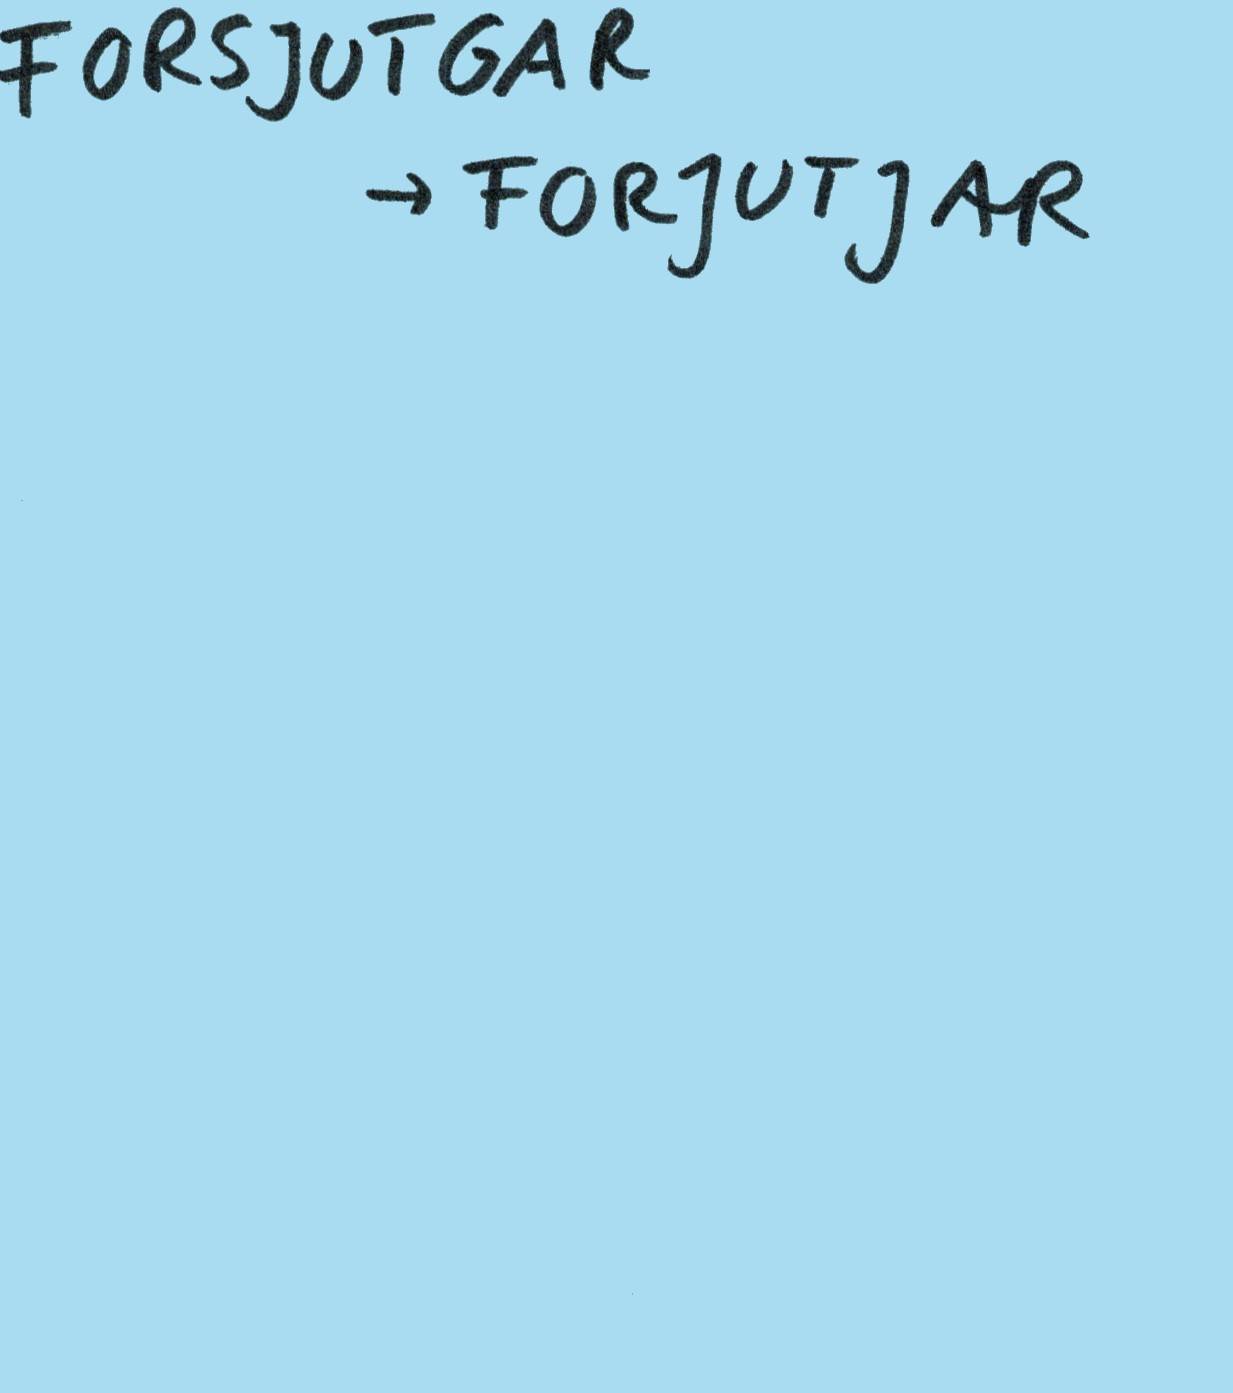 FORSJUTGAR
→ FORJUTJAR